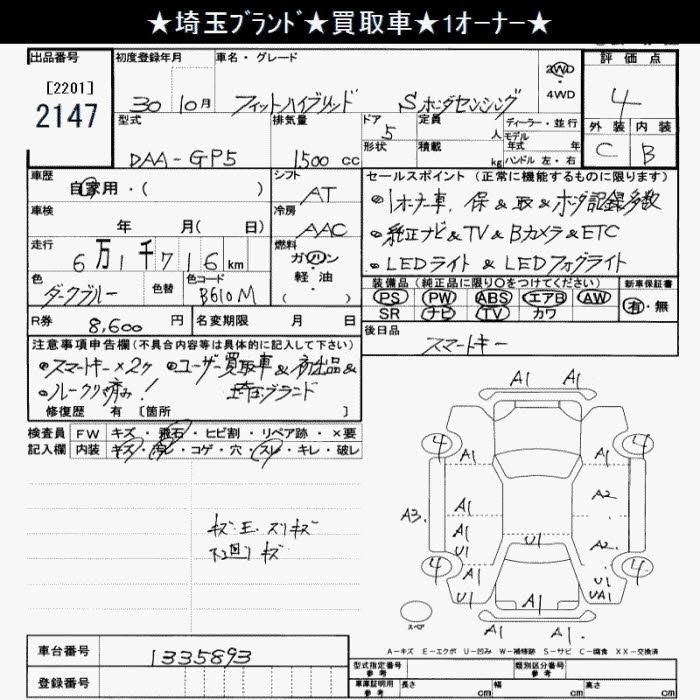 ★埼玉ﾌﾞﾗﾝﾄﾞ★買取車★1オーナー★
出品番号
[2201]
2147
初度登録年月
30 10月
車名・グレード
フィットハイブリッド Sホンダセンシング
2WD
・
4WD
評価点
4
外装 内装
C B
型式
DAA-GP5
排気量
1500 cc
ドア 5
形状
定員 人
積載 kg
ディーラー・並行
モデル
年式 年
ハンドル 左・右
車歴
自家用・( )
シフト
AT
車検
年 月( 日)
冷房
AAC
走行
6万1千716km
燃料
ガソリン
・
軽油
( )
色
ダークブルー
色替
色コード
B610M
セールスポイント(正常に機能するものに限ります)
・1オーナー車、保&取&ホンダ記録多数
・純正ナビ&TV&Bカメラ&ETC
・LEDライト&LEDフォグライト
装備品(純正品に限り○をつけてください)
PS PW ABS エアB AW
SR ナビ TV カワ
新車保証書
有・無
R券
8,600 円
名変期限 月 日
後日品
スマートキー
注意事項申告欄(不具合内容等は具体的に記入して下さい)
・スマートキー×2ケ ・ユーザー買取車&初出品&
・ルークリ済み! 埼玉ブランド
修復歴 有 [箇所 ]
検査員
記入欄
FW キズ・飛石・ヒビ割・リペア跡・×要
内装 キズ・汚レ・コゲ・穴・スレ・キレ・破レ
下回りキズ
A1 A1
4 4
A1 A1
A3. A1 A2
A1
U1 U1 A2
4 4
A1 A1
U1 A1 U1
UA1
A1 A1
スペア
A-キズ E-エクボ U-凹み W-補修跡 S-サビ C-腐食 XX-交換済
車台番号
1335893
登録番号
型式指定番号
参考
類別区分番号
参考
車庫証明用
参考
長さ cm 幅 cm 高さ cm